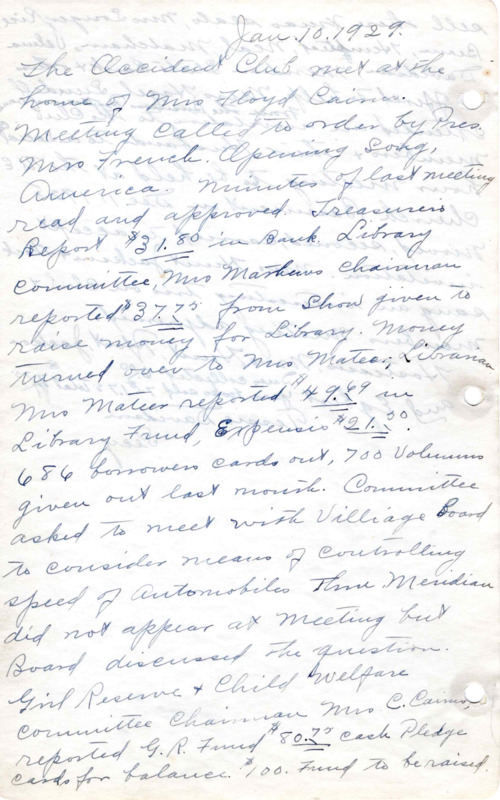 Jan. 10. 1929.
The Occident Club met at the
home of Mrs Floyd Cairns.
Meeting Called to order by Pres.
Mrs French. Opening Song,
America. Minutes of last meeting
read and approved. Treasurers
Report $31.80 in Bank. Library
Committee, Mrs Mathews Chairman
reported $37.75 from Show given to
raise money for Library. Money
turned over to Mrs Mateer, Librarian
Mrs Mateer reported $49.69 in
Library Fund, Expensis $21.50.
686 borrowers cards out, 700 Volumns
given out last month. Committee
asked to meet with Villiage Board
to consider means of controlling
speed of Automobiles thru Meridian
did not appear at Meeting but
Board discussed the question.
Girl Reserve + Child Welfare
Committee Chairman Mrs C. Cairns,
reported G.R. Fund $80.75 cash Pledge
cards for balance. $100. Fund to be raised.